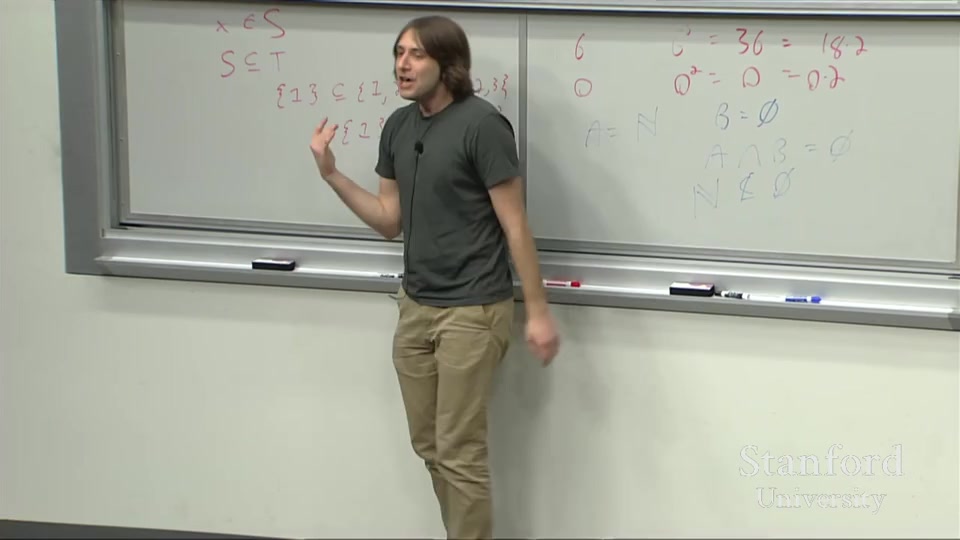 x ∈ S
S ⊆ T
{1} ⊆ {1, 2,3}
{1}
6 6² = 36 = 18·2
0 0² = 0 = 0·2
A = ℕ B = ∅
A ∩ B = ∅
ℕ ⊈ ∅
Stanford
University